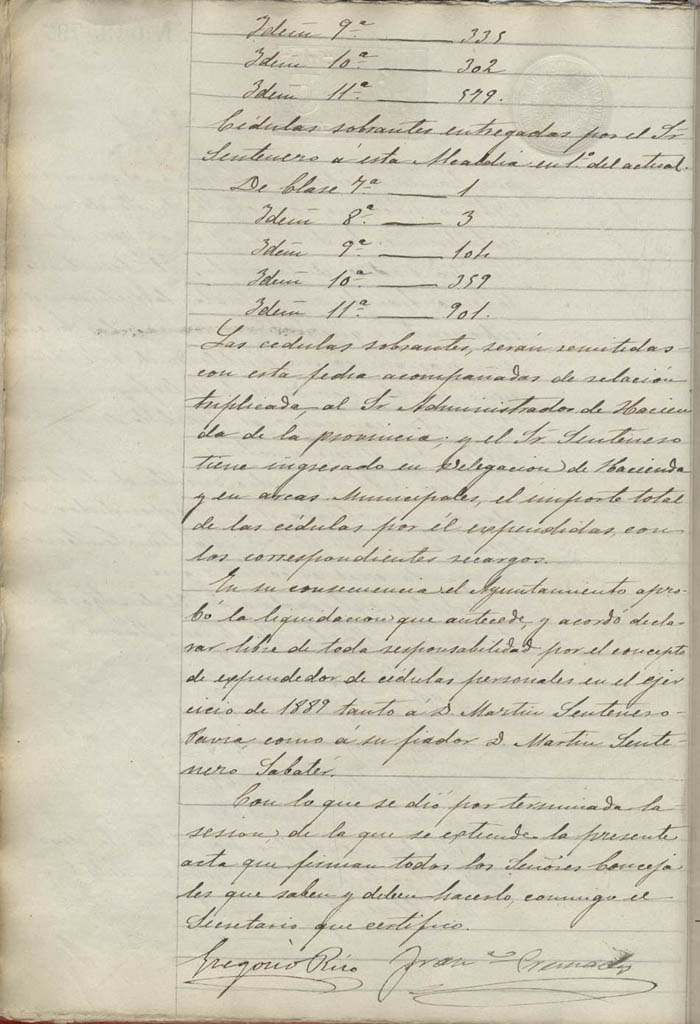 Idem 9ª 335
Idem 10ª 302
Idem 11ª 579.
Cédulas sobrantes entregadas por el Sr
Sentenero á esta Alcaldia en 1º del actual.
De Clase 7ª 1
Idem 8ª 3
Idem 9ª 104
Idem 10ª 359
Idem 11ª 901.
Las cédulas sobrantes, serán remitidas
con esta fecha acompañadas de relación
triplicada, al Sr Administrador de Hacien
da de la provincia; y el Sr. Sentenero
tiene ingresado en Delegacion de Hacienda
y en arcas Municipales, el importe total
de las cédulas por él expendidas, con
los correspondientes recargos.
En su consecuencia el Ayuntamiento apro-
bó la liquidación que antecede, y acordó decla-
rar libre de toda responsabilidad por el concepto
de expendedor de cédulas personales en el ejer
cicio de 1889 tanto á D. Martin Sentenero
Pavia, como á su fiador D. Martin Sente-
nero Sabater.
Con lo que se dió por terminada la
sesion, de la que se extiende la presente
acta que firman todos los Señores Conceja
les que saben y deben hacerlo, conmigo el
Secretario que certifico.
Gregorio Rico Franco